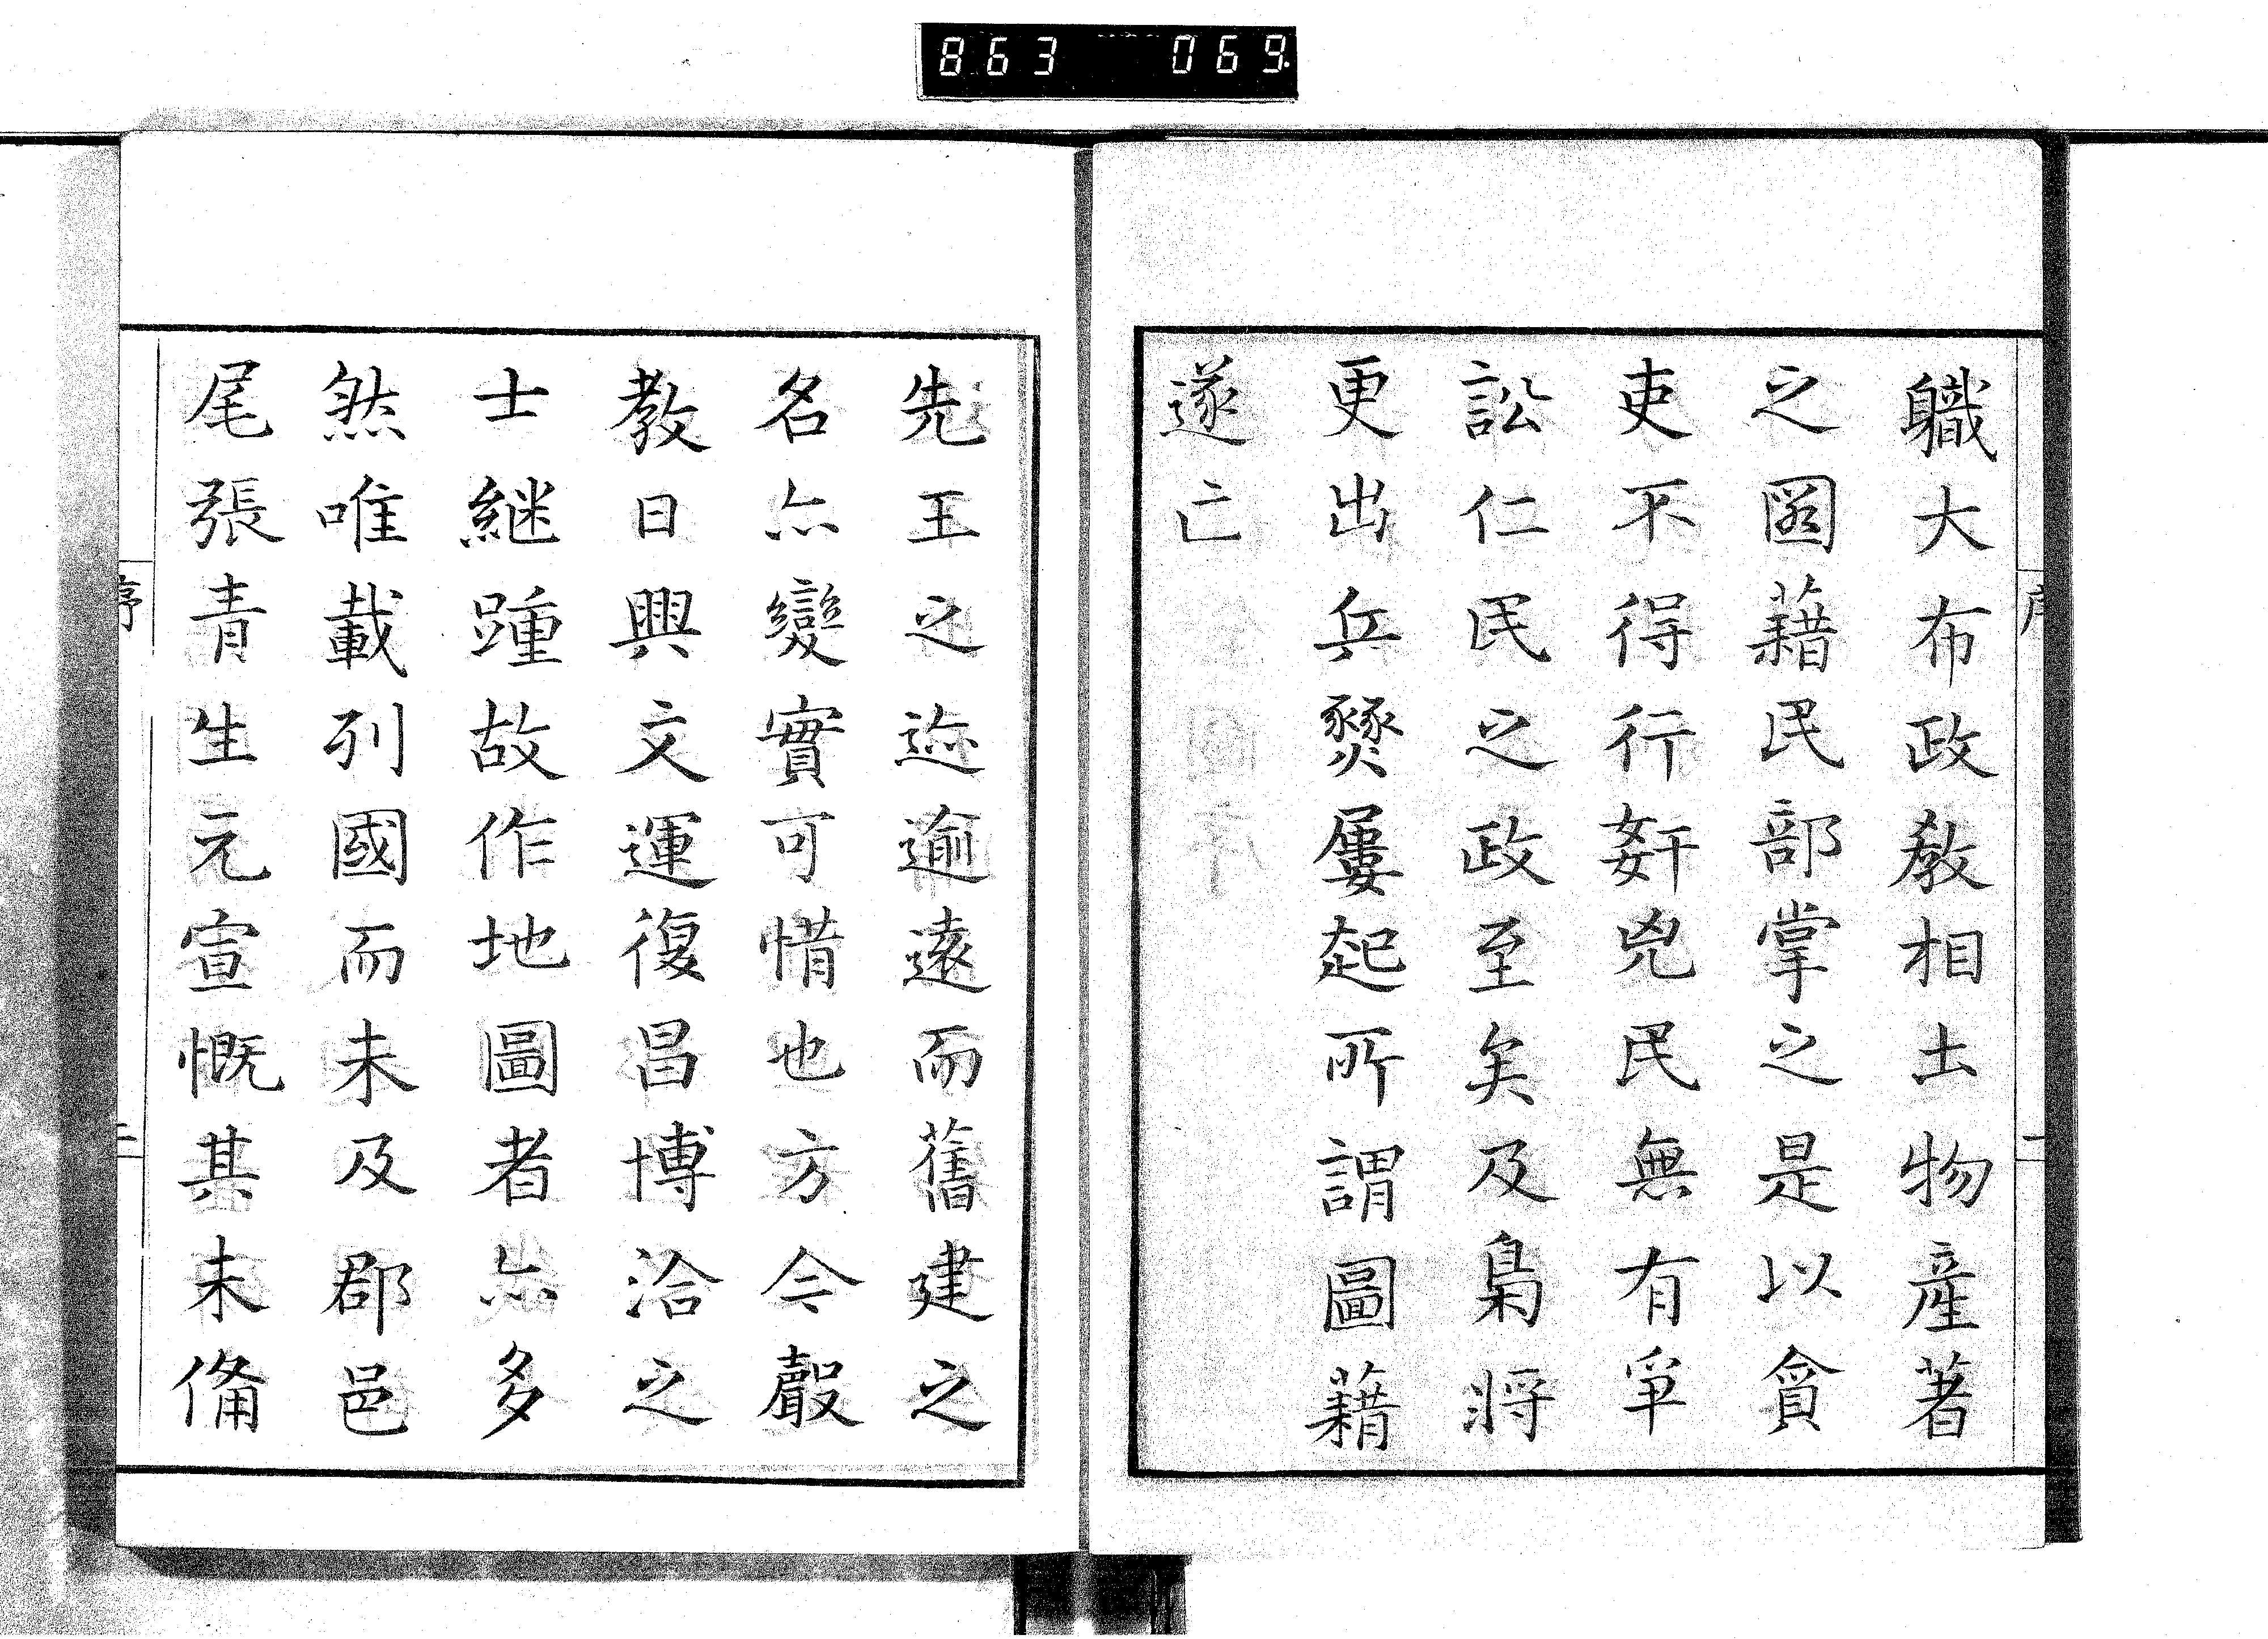 863 069
職大布政教相土物產著
之圖籍民部掌之是以貪
吏不得行奸兇民無有爭
訟仁民之政至矣及梟將
更出兵燹屢起所謂圖籍
遂亡
先王之迹逾遠而舊建之
名亦變實可惜也方今聲
教日興文運復昌博洽之
士継踵故作地圖者亦多
然唯載列國而未及郡邑
尾張青生元宣慨其未俻
序
二